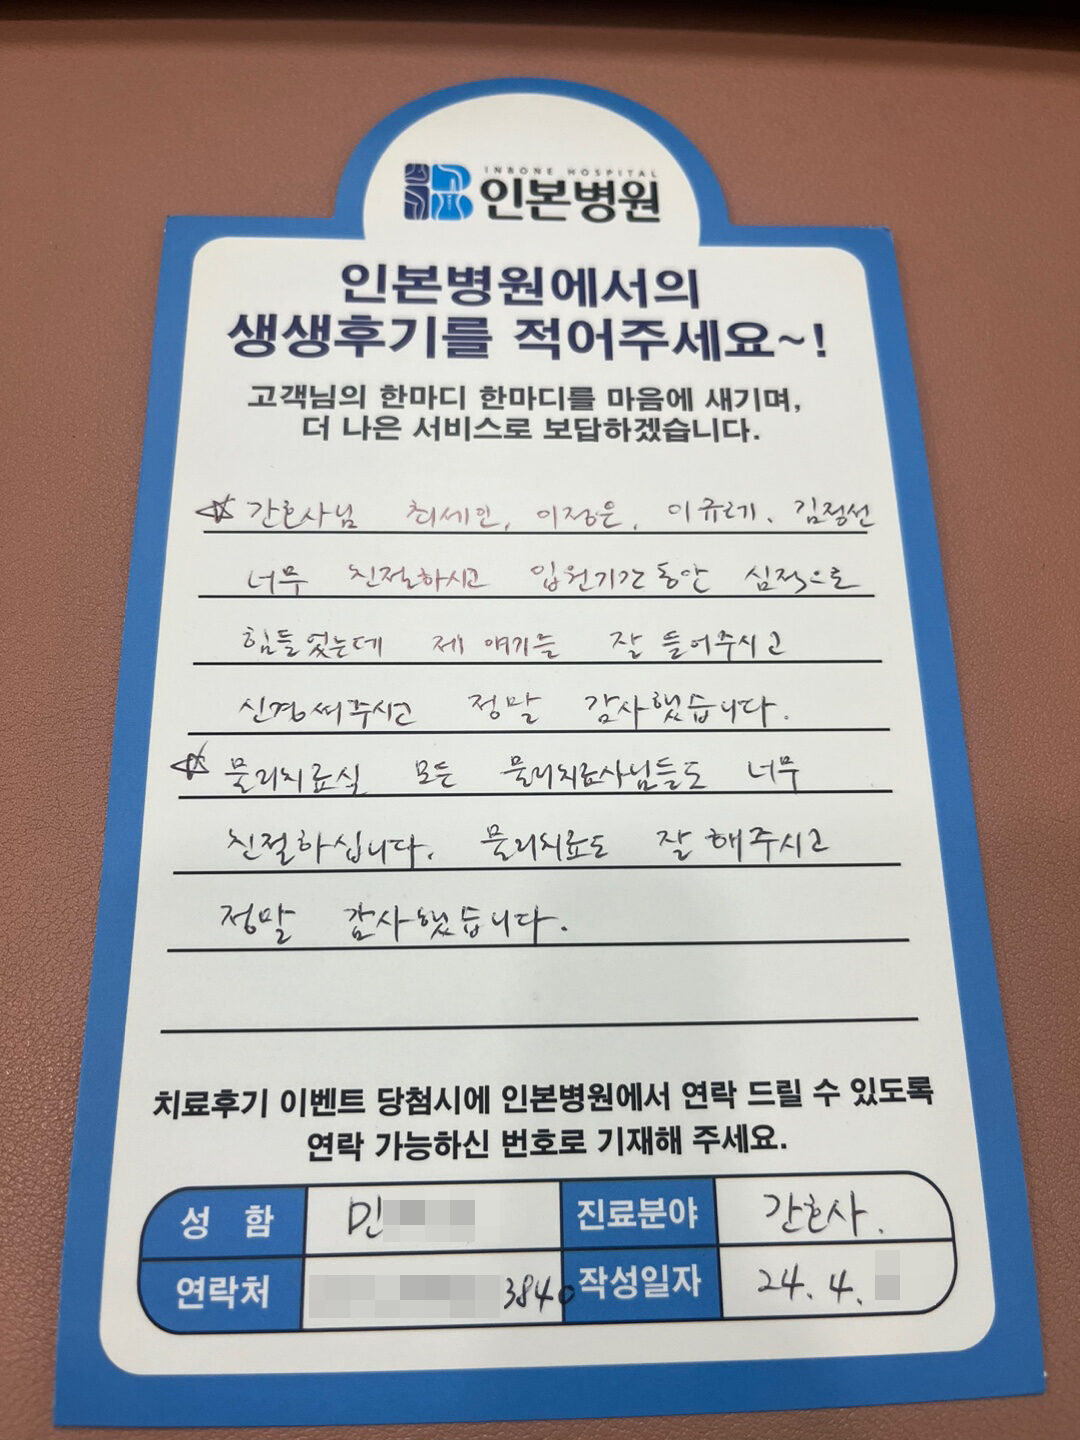 INBONE HOSPITAL
인본병원
인본병원에서의
생생후기를 적어주세요~!
고객님의 한마디 한마디를 마음에 새기며,
더 나은 서비스로 보답하겠습니다.
☆ 간호사님 최세인, 이정은, 이규레, 김정선
너무 친절하시고 입원기간동안 심적으로
힘들었는데 제 얘기를 잘 들어주시고
신경써주시고 정말 감사했습니다.
☆ 물리치료실 모든 물리치료사님들도 너무
친절하십니다. 물리치료도 잘 해주시고
정말 감사했습니다.
치료후기 이벤트 당첨시에 인본병원에서 연락 드릴 수 있도록
연락 가능하신 번호로 기재해 주세요.
성 함 민 진료분야 간호사.
연락처 3840 작성일자 24. 4.